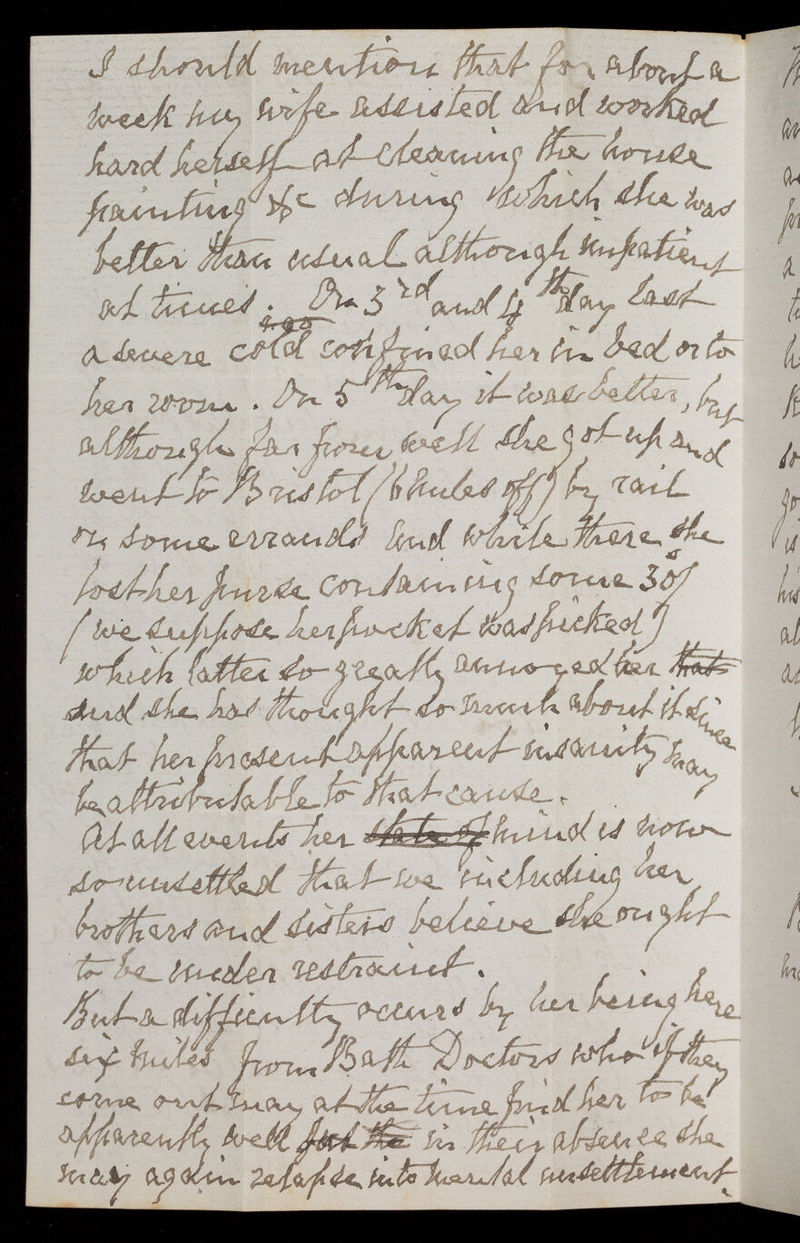 I should mention that for about a
week my wife assisted and worked
hard herself at cleaning the house
painting &c during which she was
better than usual although impatient
at times. On 3rd and 4th day last
a severe cold confined her in bed or to
her room. On 5th day it was better, but
although far from well she got up and
went to Bristol (6 miles off) by rail
on some errands and while there she
lost her purse containing some 30s/
(we suppose her pocket was picked)
which latter so greatly annoyed her that
and she has thought so much about it since
that her present apparent insanity may
be attributable to that cause.
At all events her state of mind is now
so unsettled that we including her
brothers and sisters believe she ought
to be under restraint.
But a difficulty occurs by her being here
six miles from Bath Doctors who if they
come out may at the time find her to be
apparently well but the in their absence she
may again relapse into mental unsettlement.